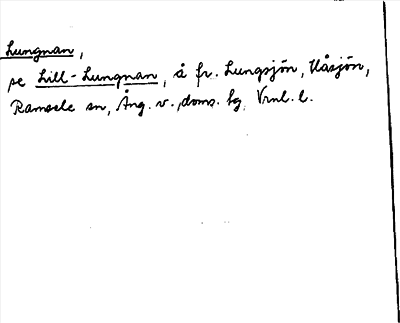 Lungnan,
se Lill-Lungnan, å fr. Lungsjön, Uåsjön,
Ramsele sn, Ång. v., doms. hg. Vrnl. l.